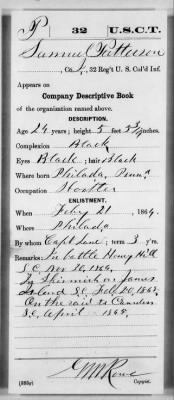 P 32 U.S.C.T.
Samuel Patterson
, Co. I, 32 Reg't U. S. Col'd Inf.
Appears on
Company Descriptive Book
of the organization named above.
DESCRIPTION.
Age 24 years; height 5 feet 5 3/4 inches.
Complexion Black
Eyes Black; hair Black
Where born Philada, Penna
Occupation
ENLISTMENT.
When Feby 21, 1864.
Where Philada
By whom Capt Lane; term 3 y'rs.
Remarks: In battle Honey Hill
S.C. Nov 30, 1864.
In Skirmish on James
Island S.C. Feb 10, 1865.
On the raid to Camden
S.C. April 1865.
(383g) Copyist.